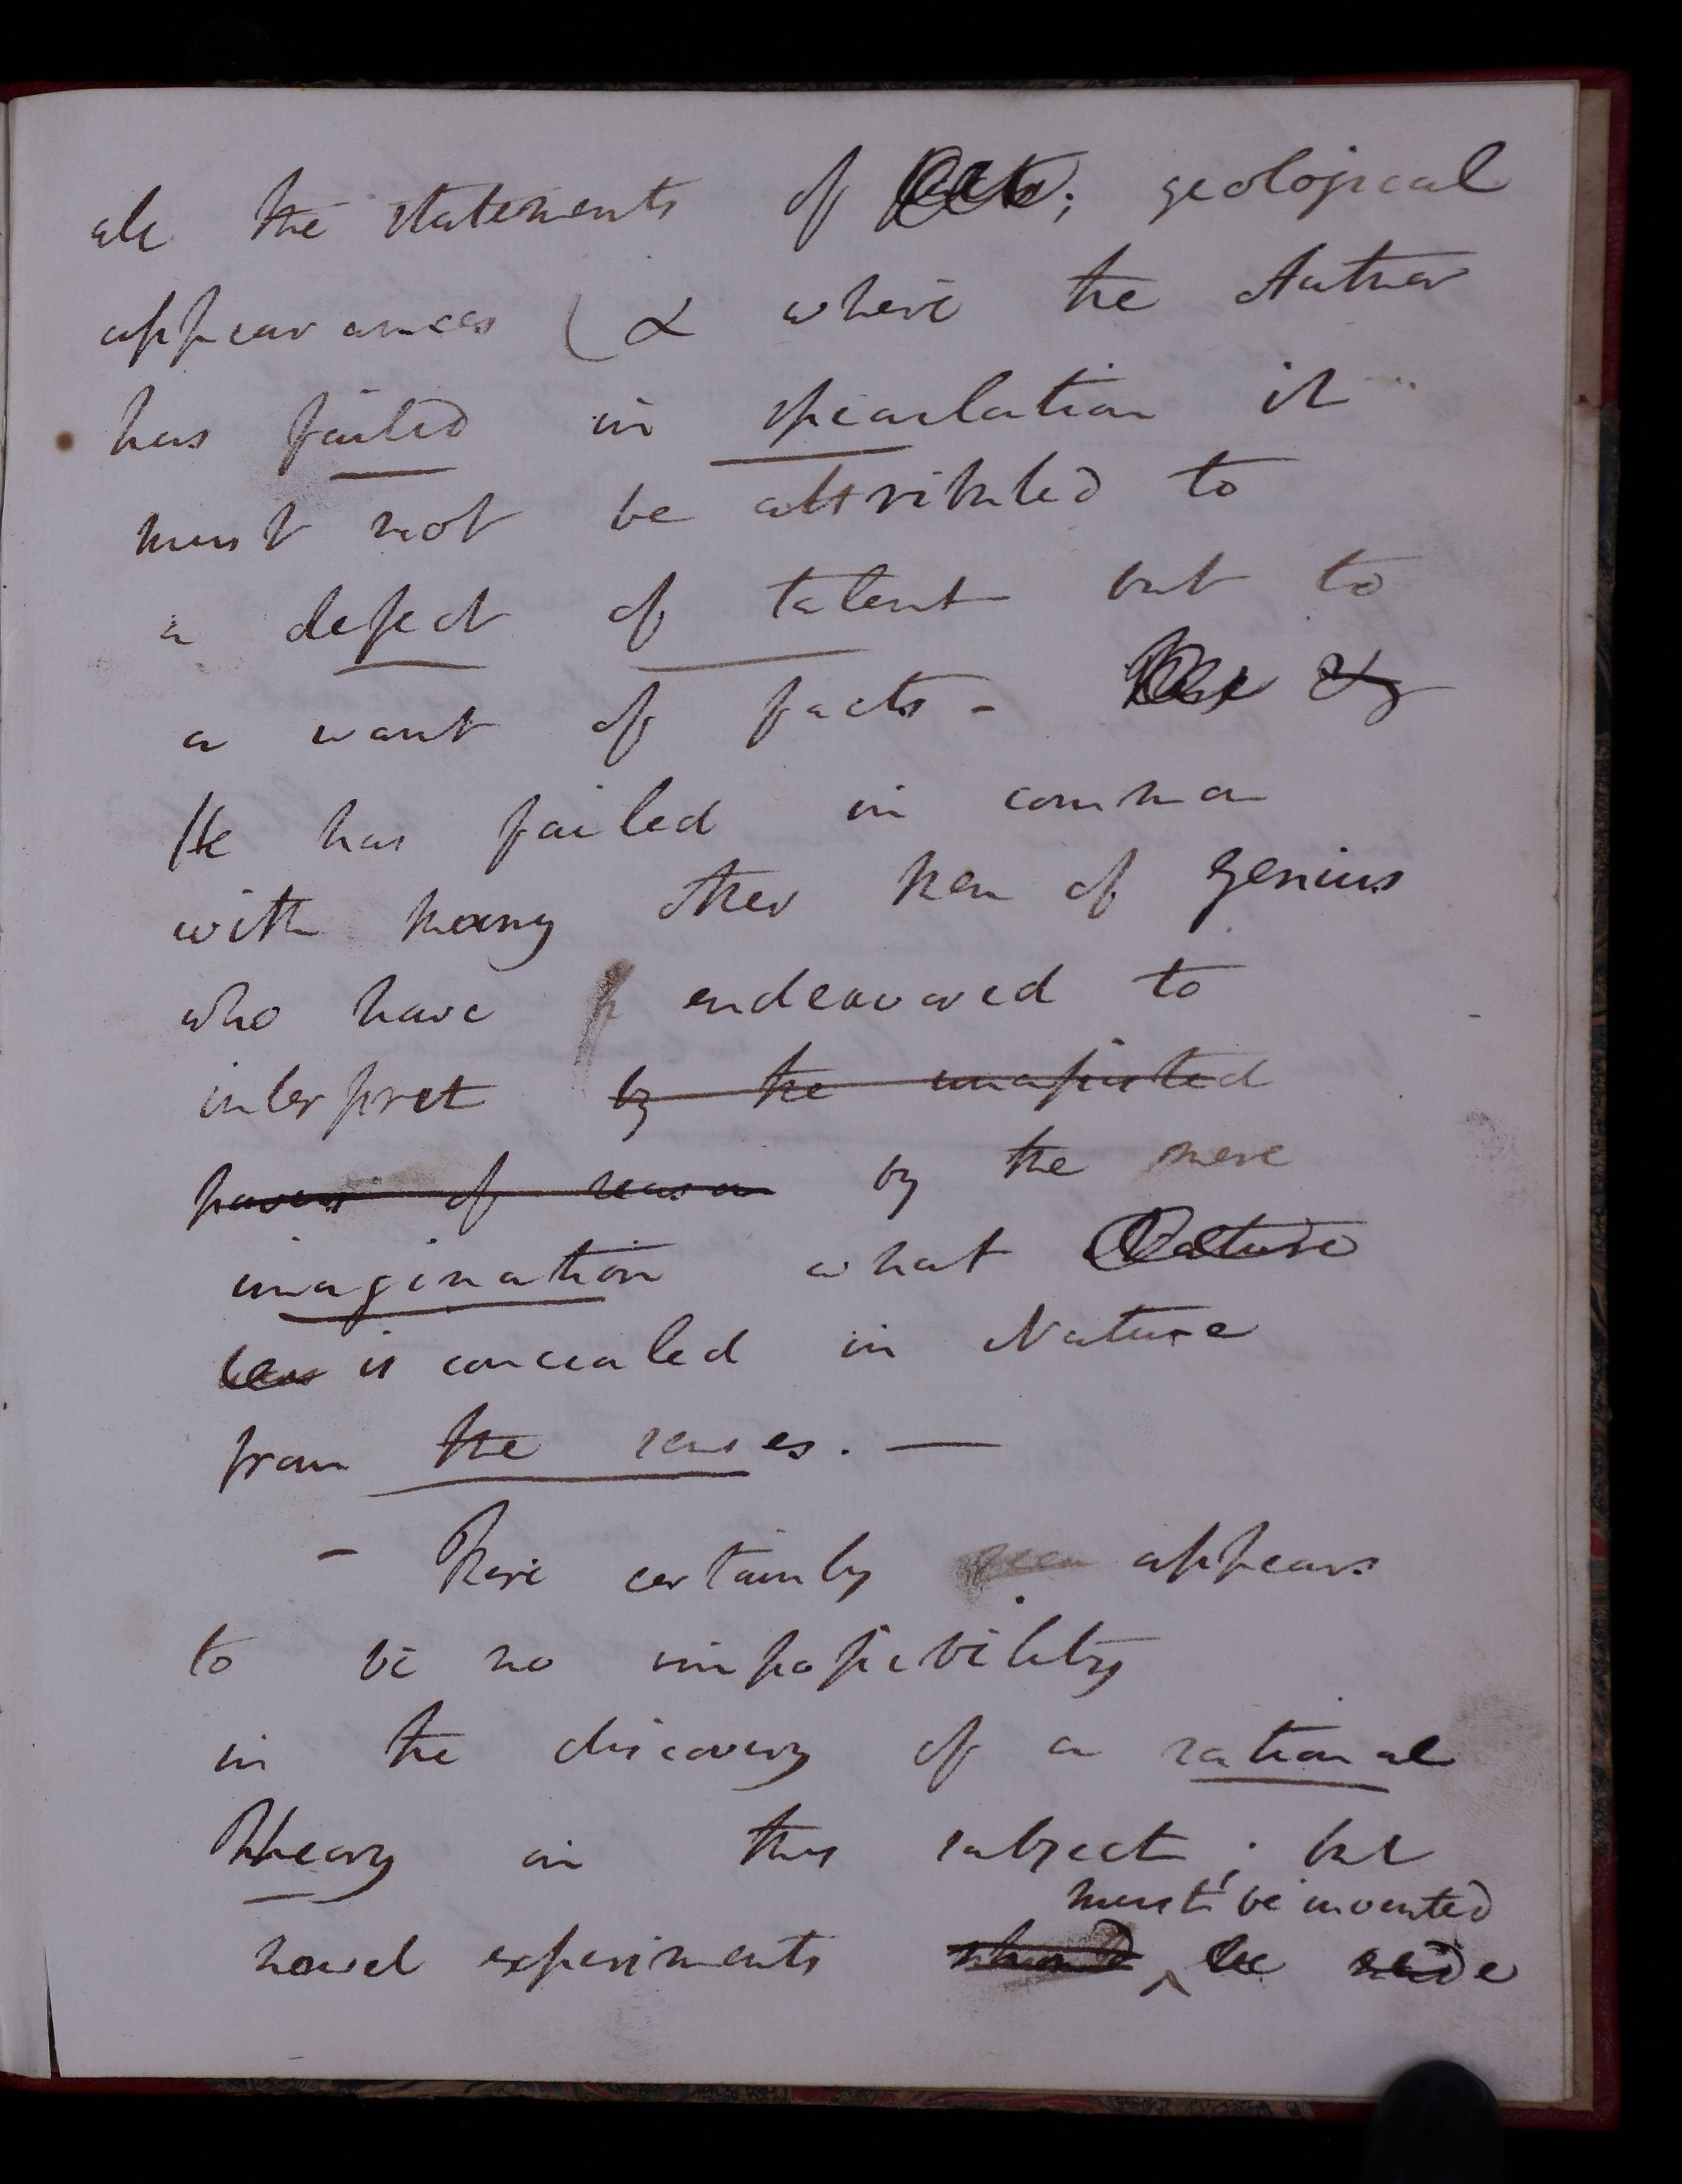 all the statements of facts; geological
appearances ( & where the Author
has failed in speculation it
must not be attributed to
a defect of talent but to
a want of facts -
He has failed in common
with many other Men of genius
who have endeavoured to
interpret by the unassisted
powers of reason by the mere
imagination what Nature
has is concealed in Nature
from the senses. —
- There certainly appears
to be no impossibility
in the discovery of a rational
Theory in this subject; but
must be invented
novel experiments should ^ be made